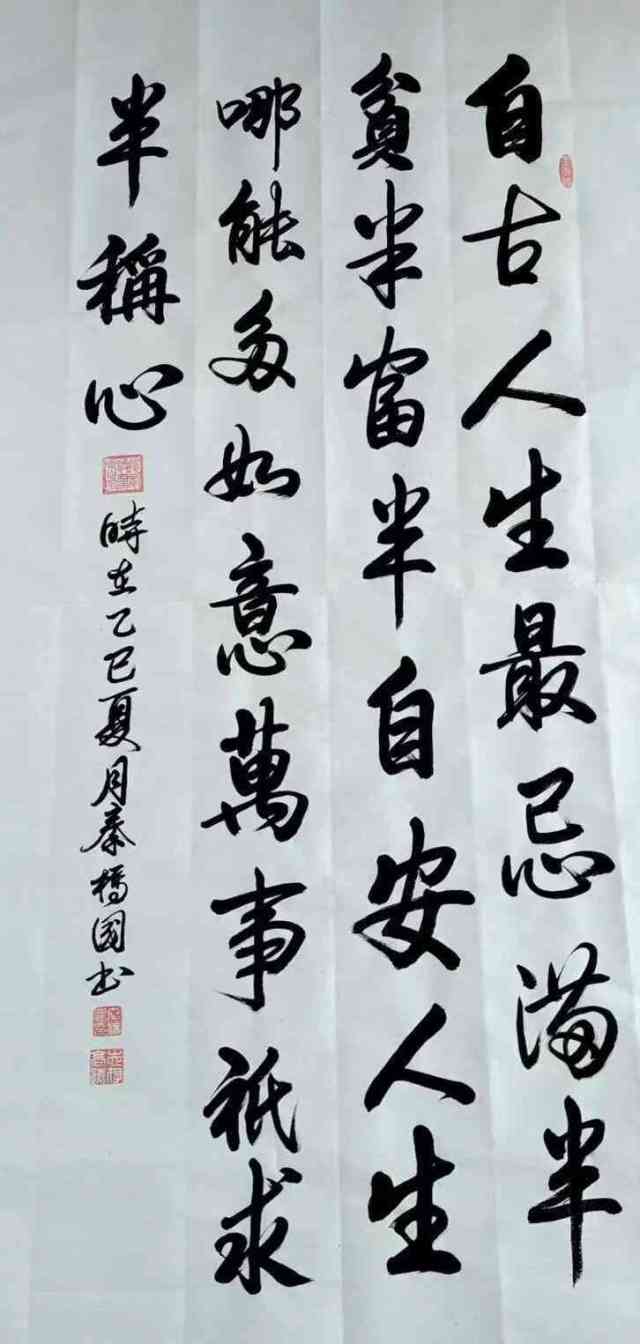 自古人生最忌滿半
貧半富半自安人生
哪能多如意萬事祇求
半稱心
時在乙巳夏月秦橋國书